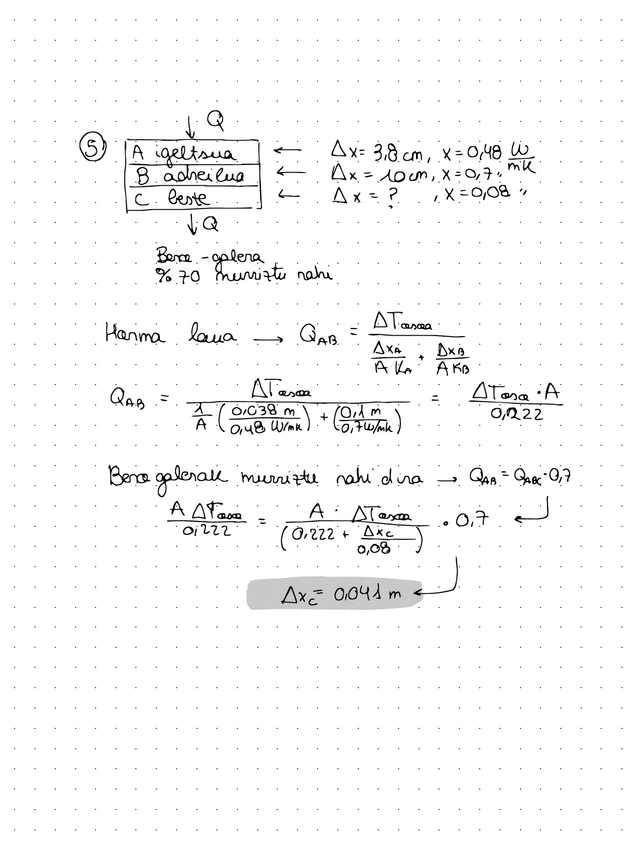 Q
5 A igeltsua ← Δx = 3,8 cm, x = 0,48 W/mK
B adreilua ← Δx = 10 cm, x = 0,7 "
C beste ← Δx = ? , x = 0,08 "
Q
Bero-galera
% 70 murriztu nahi
Horma laua → Q_AB = ΔTosoa / (Δx_A / (A K_A) + Δx_B / (A K_B))
Q_AB = ΔTosoa / (1/A (0,038 m / 0,48 W/mK) + (0,1 m / 0,7 W/mK)) = ΔTosoa · A / 0,222
Bero galerak murriztu nahi dira → Q_AB = Q_ABC · 0,7
A ΔTosoa / 0,222 = A · ΔTosoa / (0,222 + Δx_C / 0,08) · 0,7
Δx_C = 0,041 m